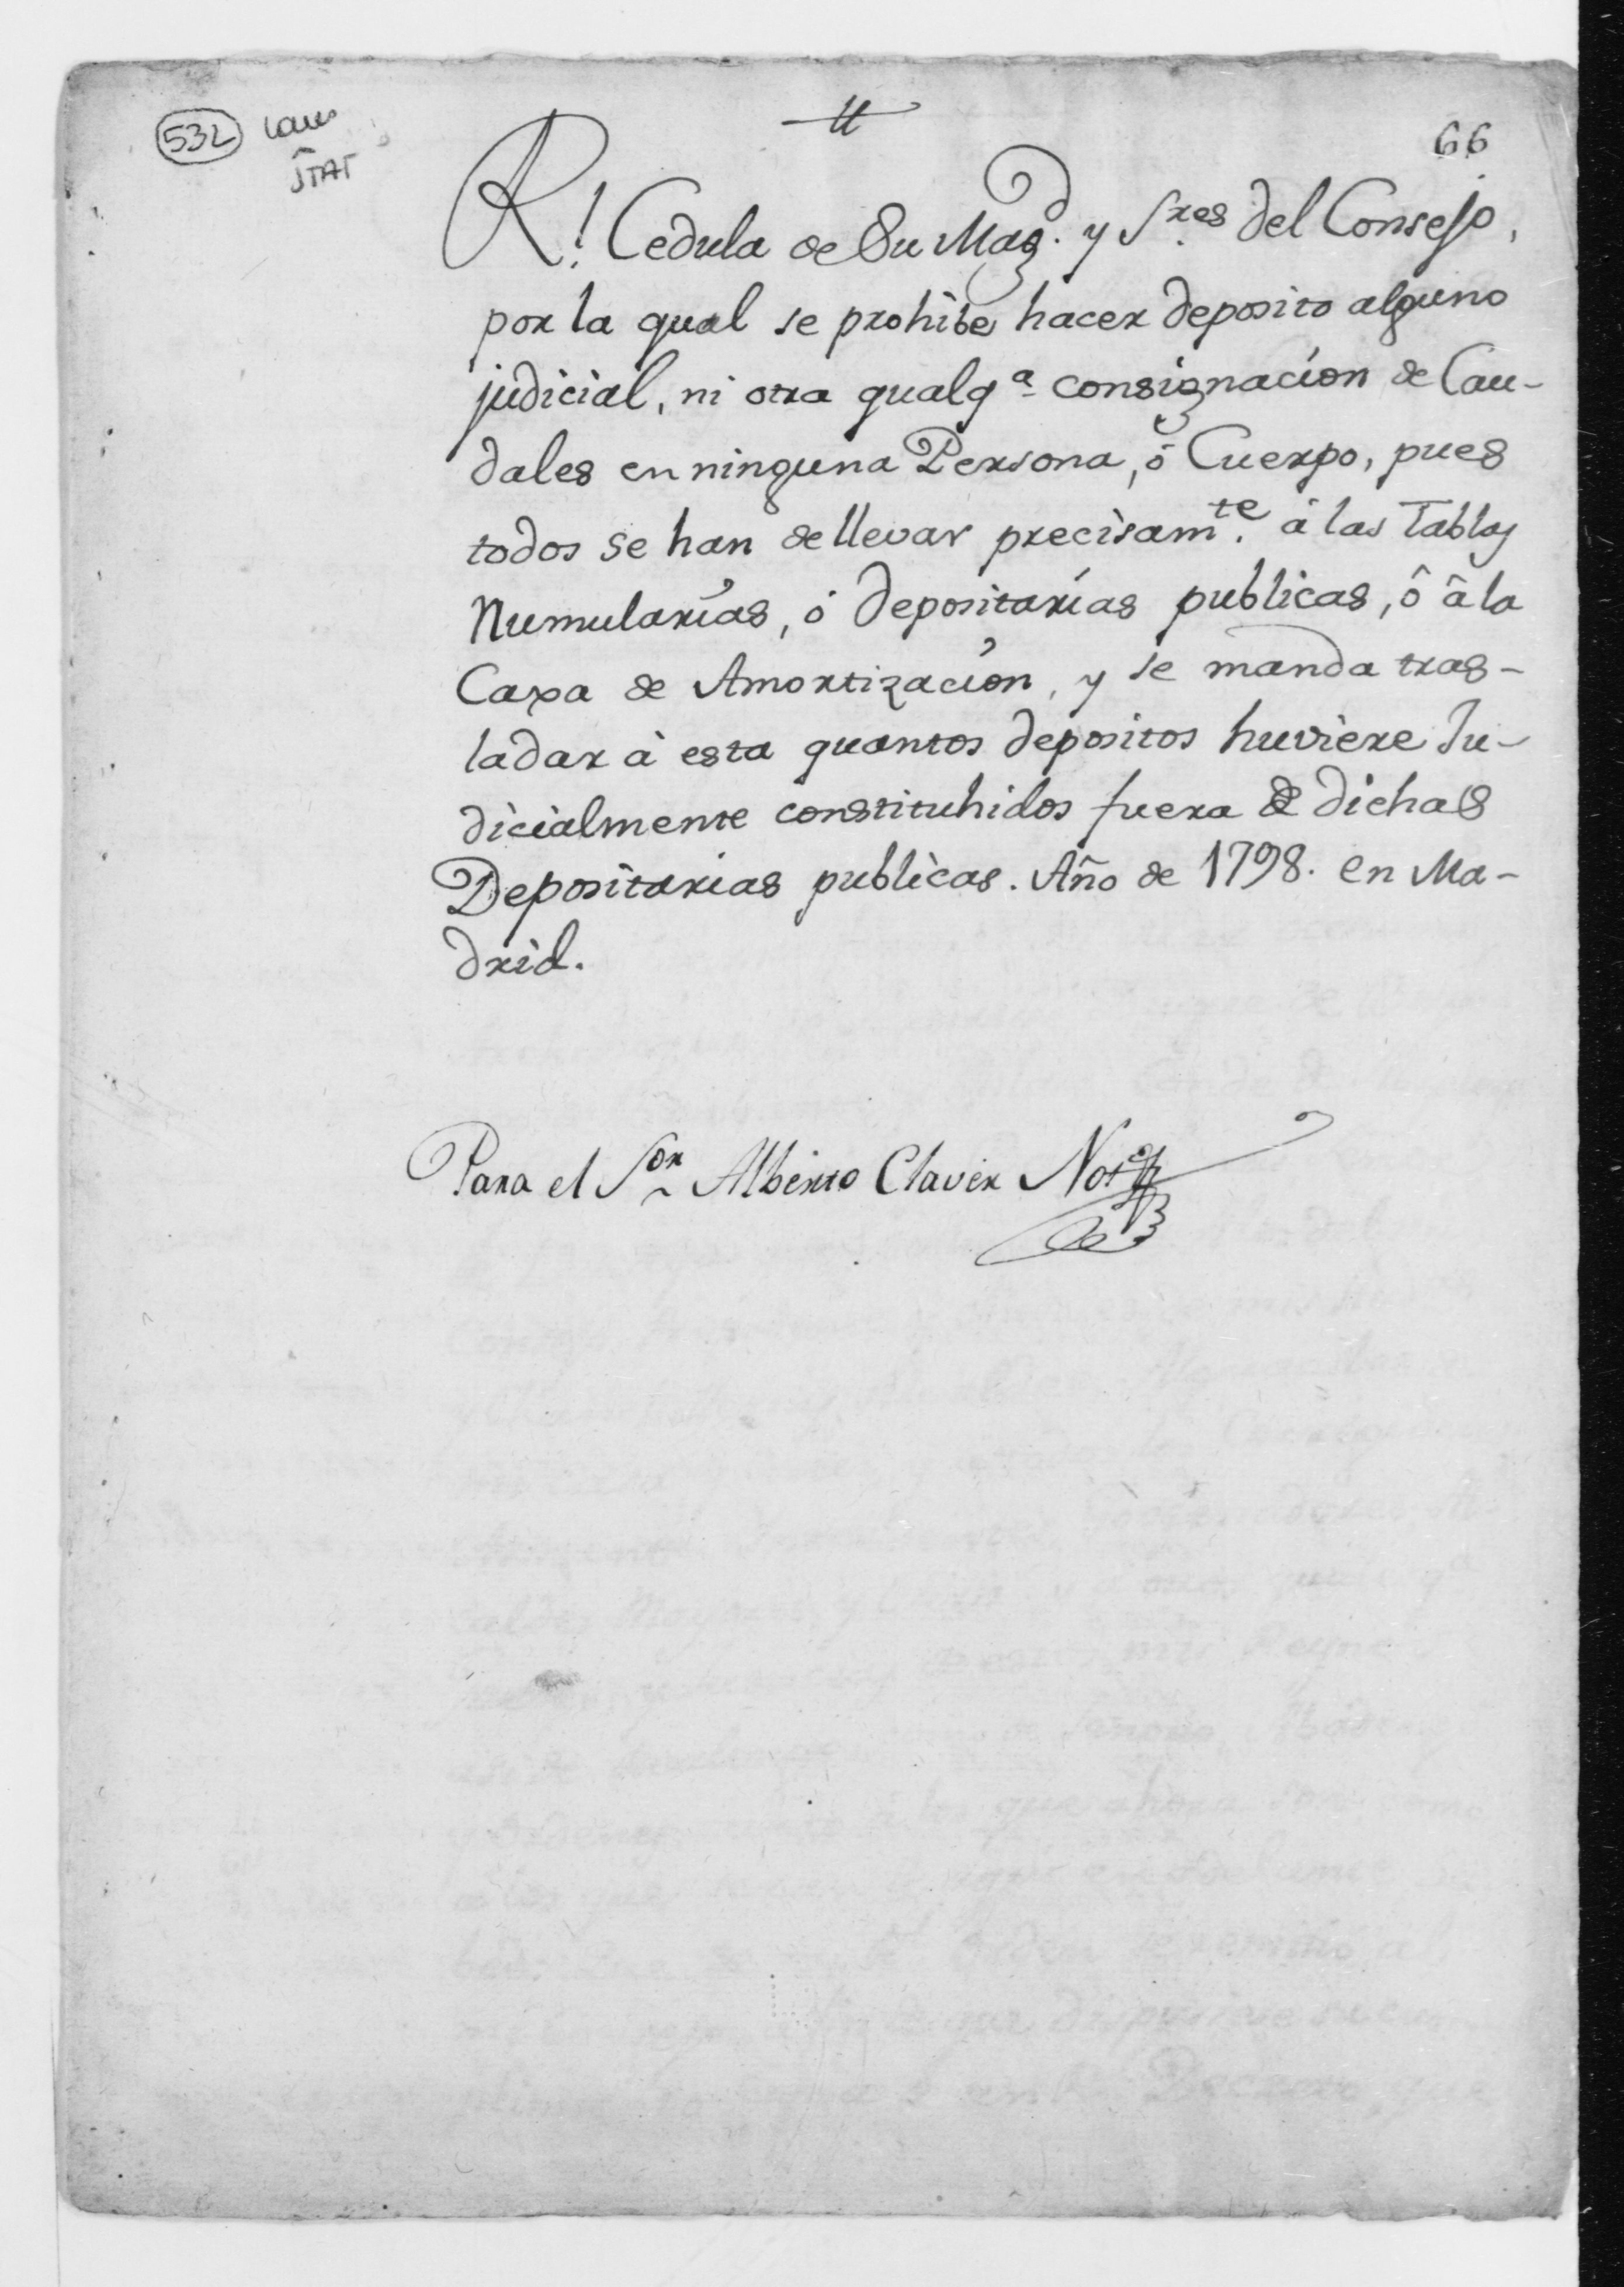 532
66
Rl. Cedula de Su Magd. y Sres. del Consejo,
por la qual se prohibe hacer deposito alguno
judicial, ni otra qualqa. consignacion de Cau-
dales en ninguna Persona, ó Cuerpo, pues
todos se han de llevar precisamte. à las Tablas
Numularías, ó depositarías publicas, ô â la
Caxa de Amortización, y se manda tras-
ladar à esta quantos depositos huviere Ju-
dicialmente constituhidos fuera de dichas
Depositarias publicas. Año de 1798. en Ma-
drid.
Para el Sor. Alberto Claver Noto.